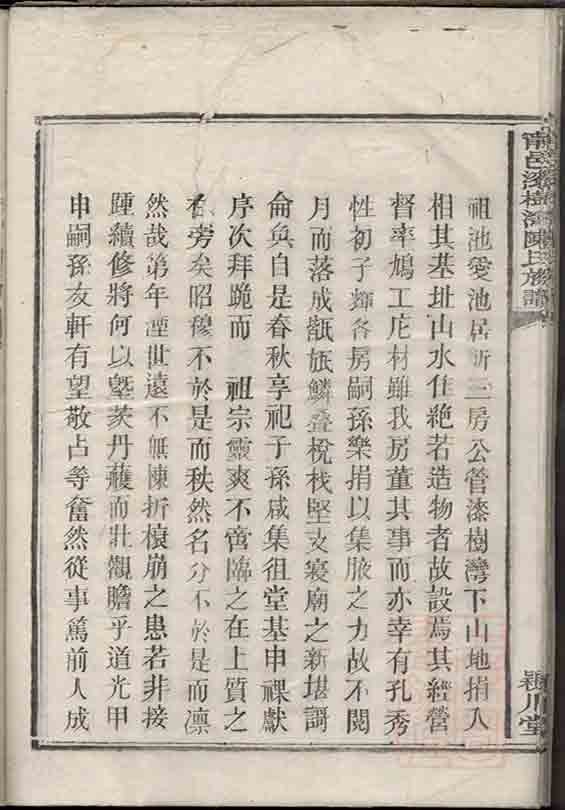 甯邑漆樹灣陳氏族譜
潁川堂
祖池愛池居祈三房公管漆樹灣下山地捐入
相其基址山水佳絶若造物者故設焉其經營
督率鳩工庀材雖我房董其事而亦幸有孔秀
性初子輝各房嗣孫樂捐以集腋之力故不閱
月而落成瓴瓬鱗叠梲栈堅支寢廟之新堪謌
侖奐自是春秋享祀子孫咸集徂堂基申祼獻
序次拜跪而 祖宗靈爽不啻臨之在上質之
在旁矣昭穆不於是而秩然名分不於是而凛
然哉第年湮世遠不無棟折榱崩之患若非接
踵續修將何以塈茨丹雘而壯觀瞻乎道光甲
申嗣孫友軒有望敬占等奮然從事篤前人成